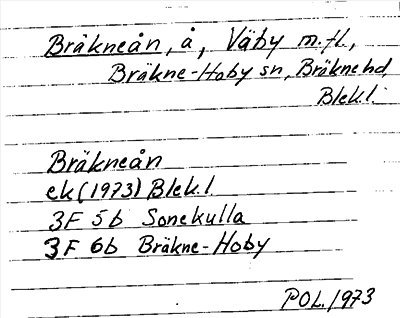 Bräkneån, å, Väby m.fl.,
Bräkne-Hoby sn, Bräkne hd,
Blek.l.
Bräkneån
ek (1973) Blek.l
3F 5b Sonekulla
3F 6b Bräkne-Hoby
POL. 1973